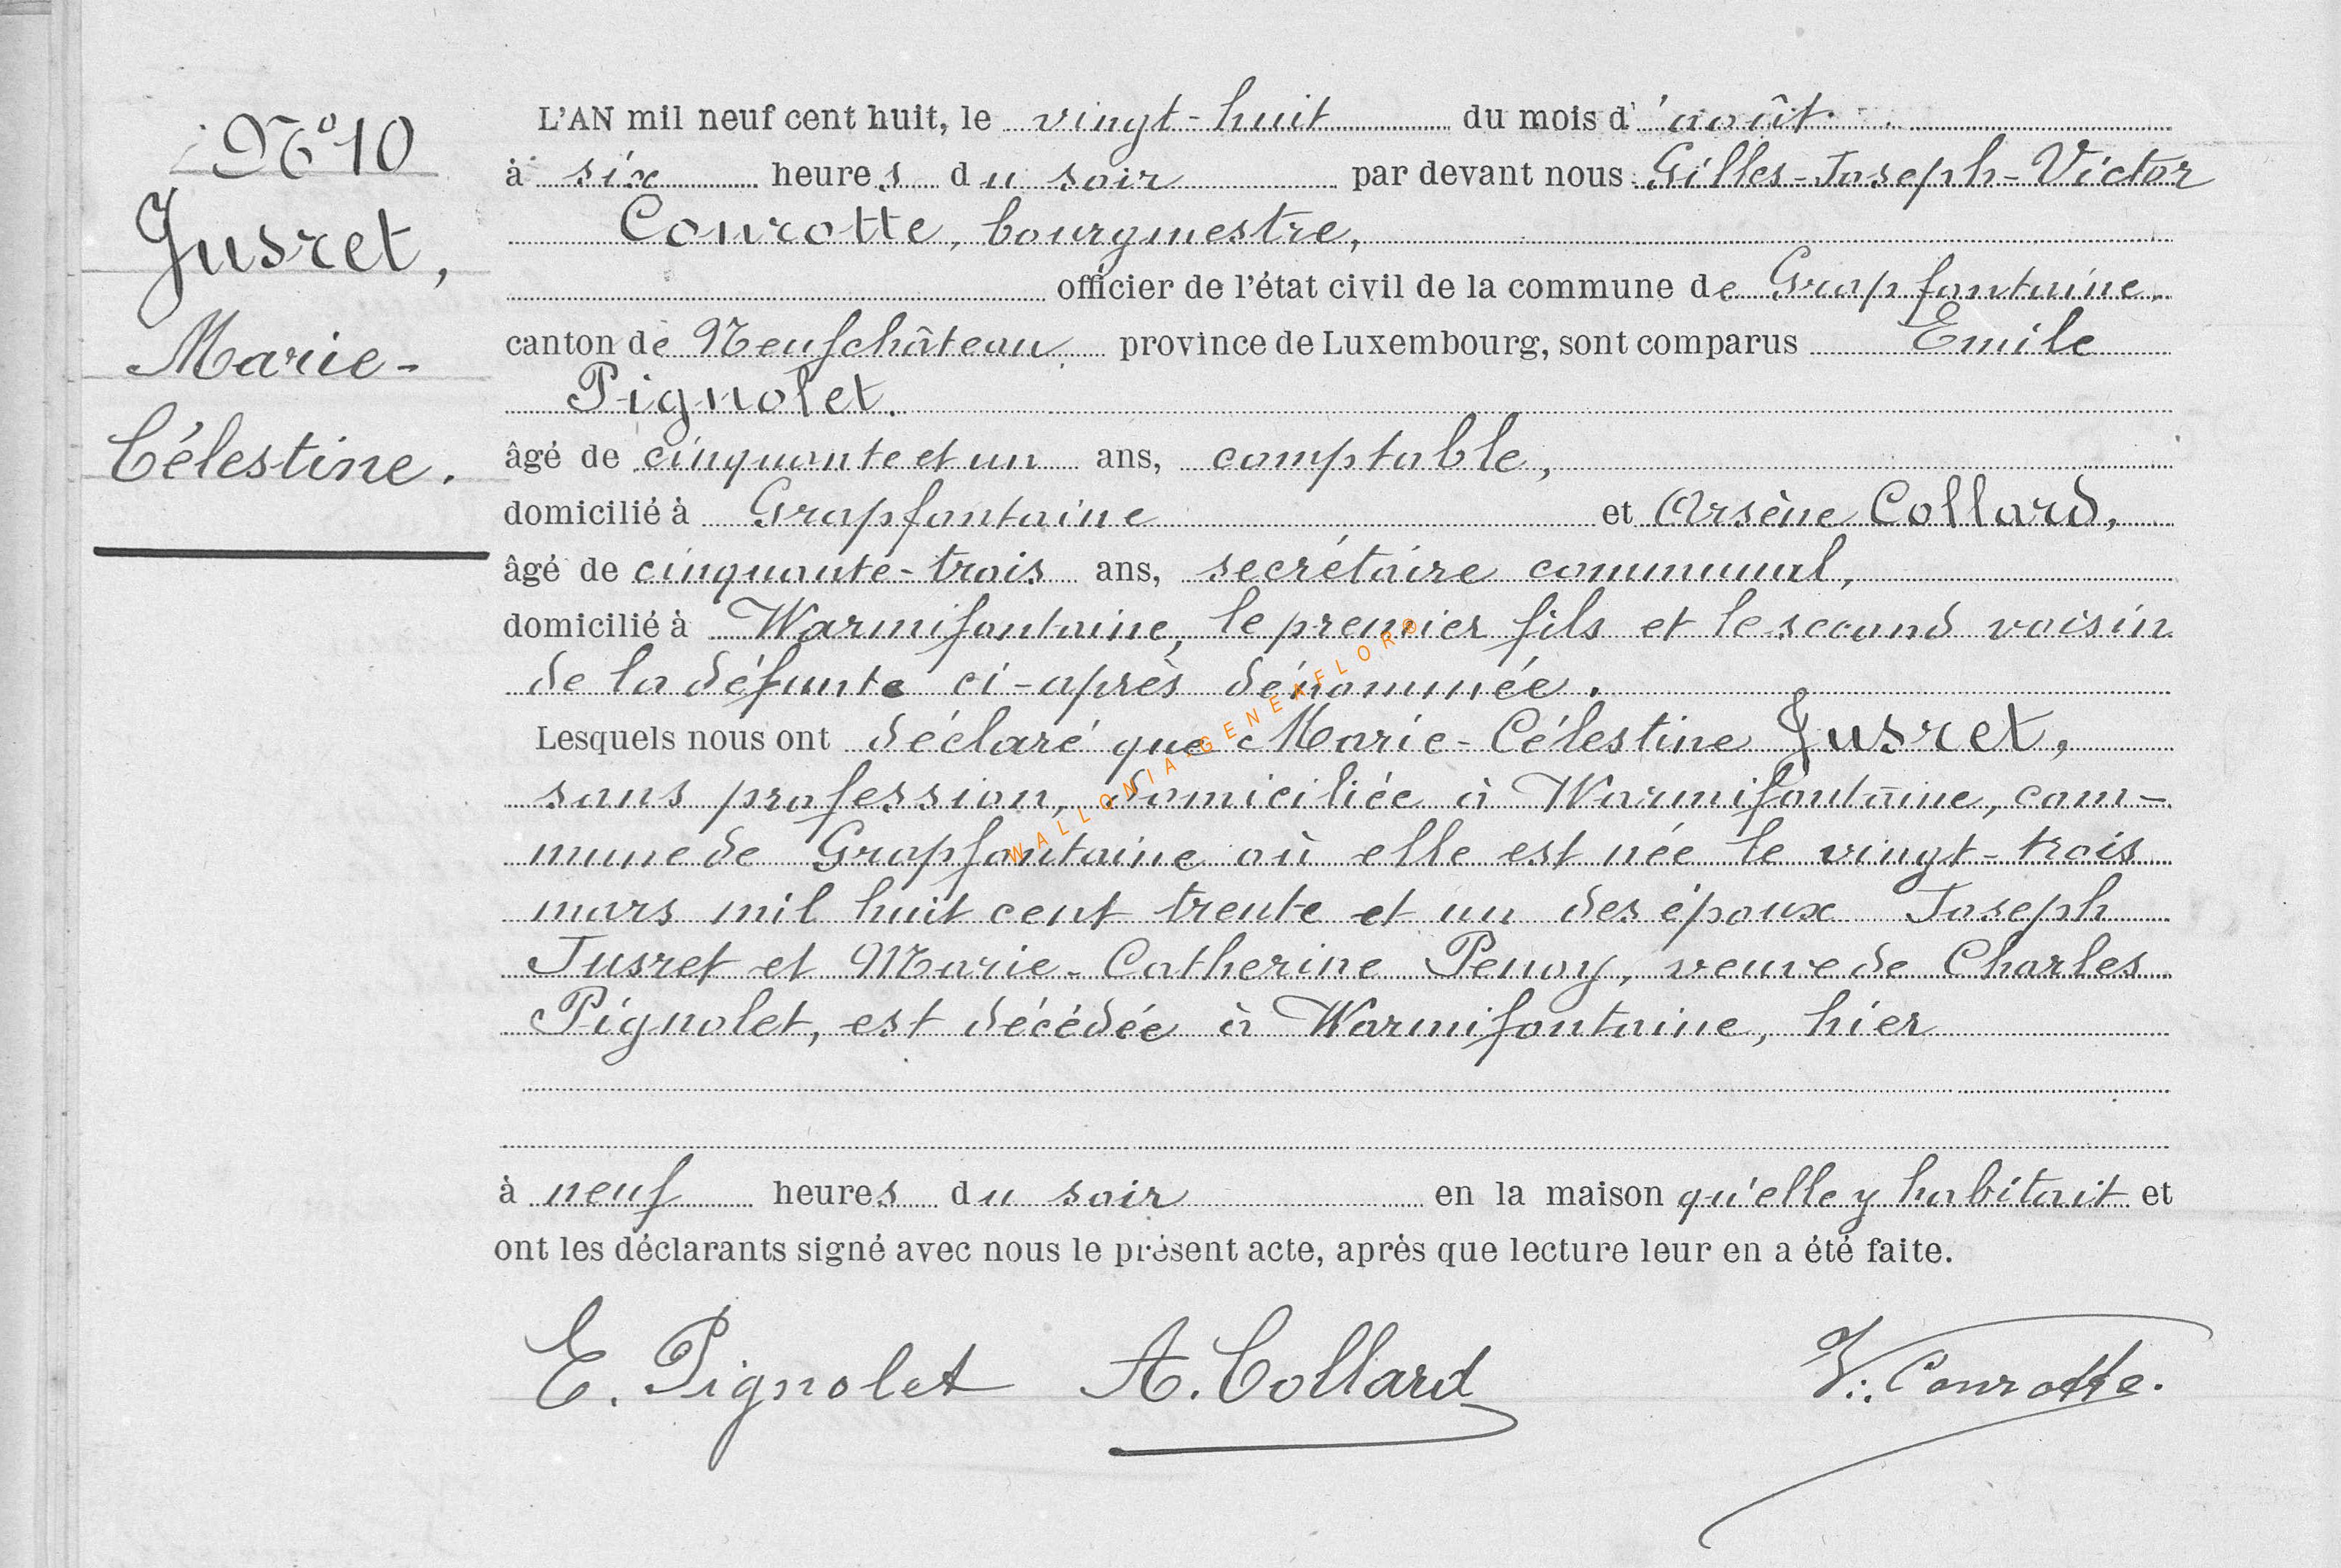 N° 10
Jusret,
Marie-
Célestine.
L'AN mil neuf cent huit, le vingt-huit du mois d'août
à six heures du soir par devant nous Gilles-Joseph-Victor
Conrotte, bourgmestre,
officier de l'état civil de la commune de Grapfontaine
canton de Neufchâteau province de Luxembourg, sont comparus Emile
Pignolet.
âgé de cinquante et un ans, comptable,
domicilié à Grapfontaine et Arsène Collard,
âgé de cinquante-trois ans, secrétaire communal,
domicilié à Warmifontaine, le premier fils et le second voisin
de la défunte ci-après dénommée.
Lesquels nous ont déclaré que Marie-Célestine Jusret,
sans profession, domiciliée à Warmifontaine, com-
mune de Grapfontaine où elle est née le vingt-trois
mars mil huit cent trente et un des époux Joseph
Jusret et Marie-Catherine Penoy, veuve de Charles
Pignolet, est décédée à Warmifontaine, hier
à neuf heures du soir en la maison qu'elle y habitait et
ont les déclarants signé avec nous le présent acte, après que lecture leur en a été faite.
E. Pignolet A. Collard V. Conrotte.
WALLONIA.GENEAFLORE